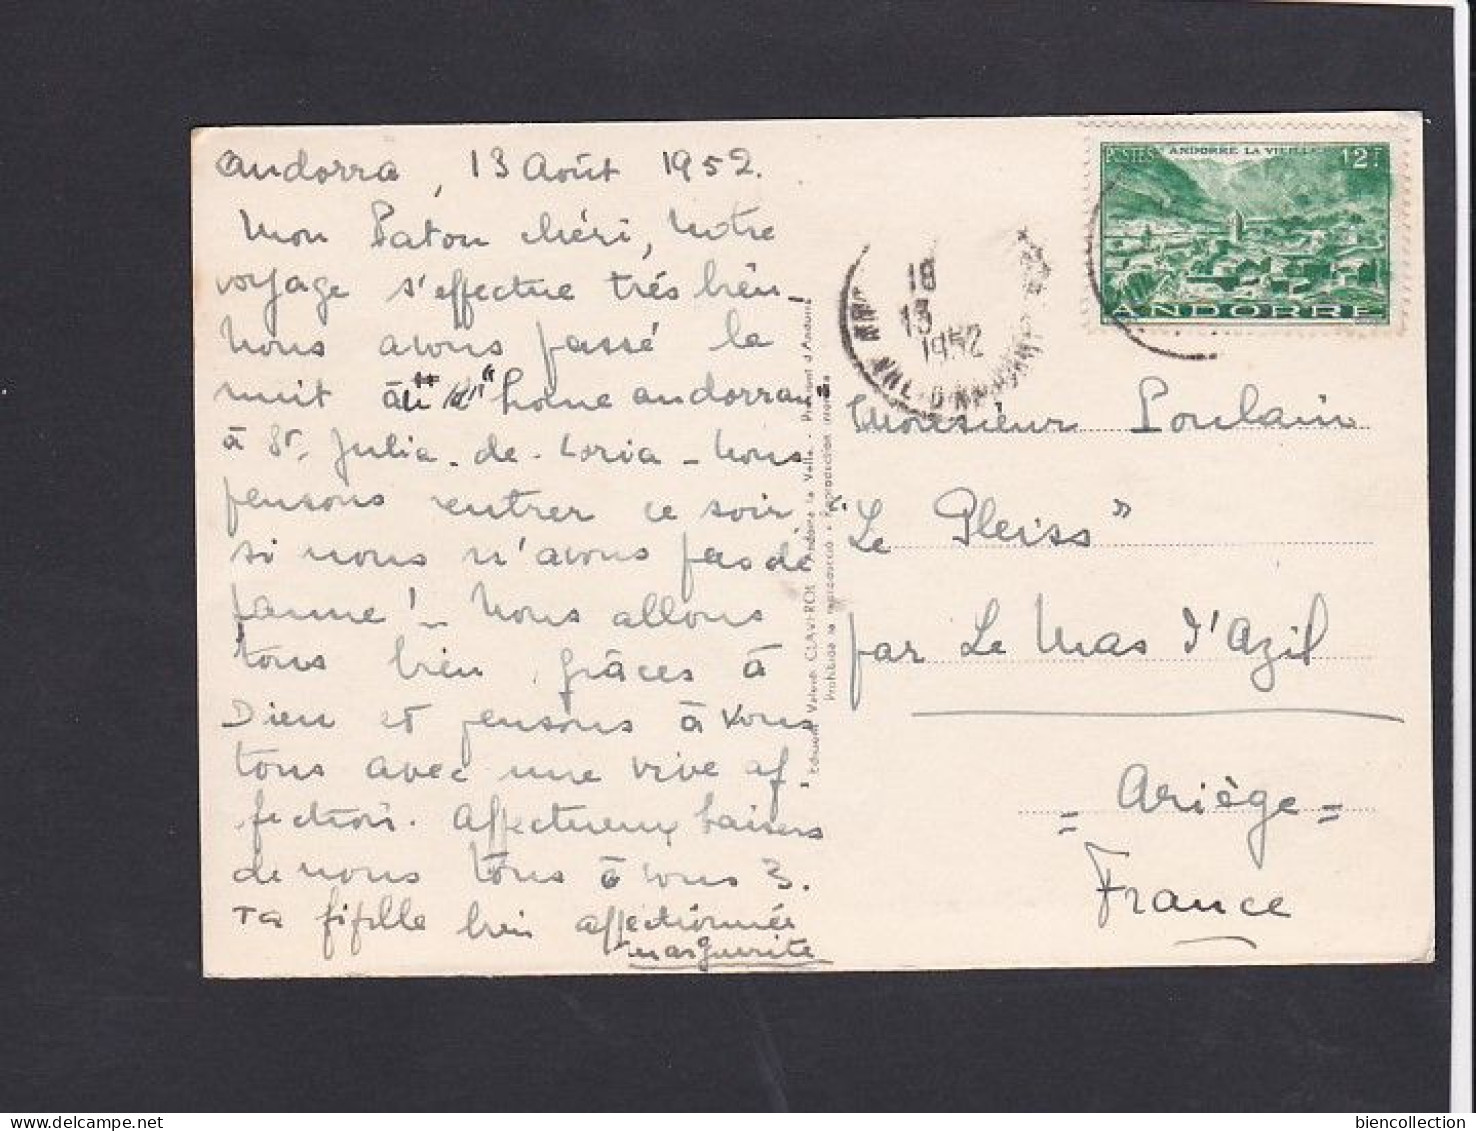 Andorra, 13 Août 1952.
Mon Paton chéri, Notre
voyage s'effectue très bien_
Nous avons passé la
nuit à "home andorran"
à St. Julia-de-Loria - Nous
pensons rentrer ce soir
si nous n'avons pas de
panne! _ Nous allons
tous bien, grâces à
Dieu et pensons à vous
tous avec une vive af
fection. Affectueux baisers
de nous tous à vous 3.
Ta fifille bien affectionnée
Marguerite
Edicions Valentí CLAVEROL Andorra la Vella. - Principat d'Andorra
Prohibida la reproducció - Reproduction interdite
POSTES ANDORRE LA VIEILLE 12F
ANDORRE
18
13
1952
Monsieur Poulain
"Le Pleiss"
par Le Mas d'Azil
= Ariège =
France
delcampe.net
biencollection